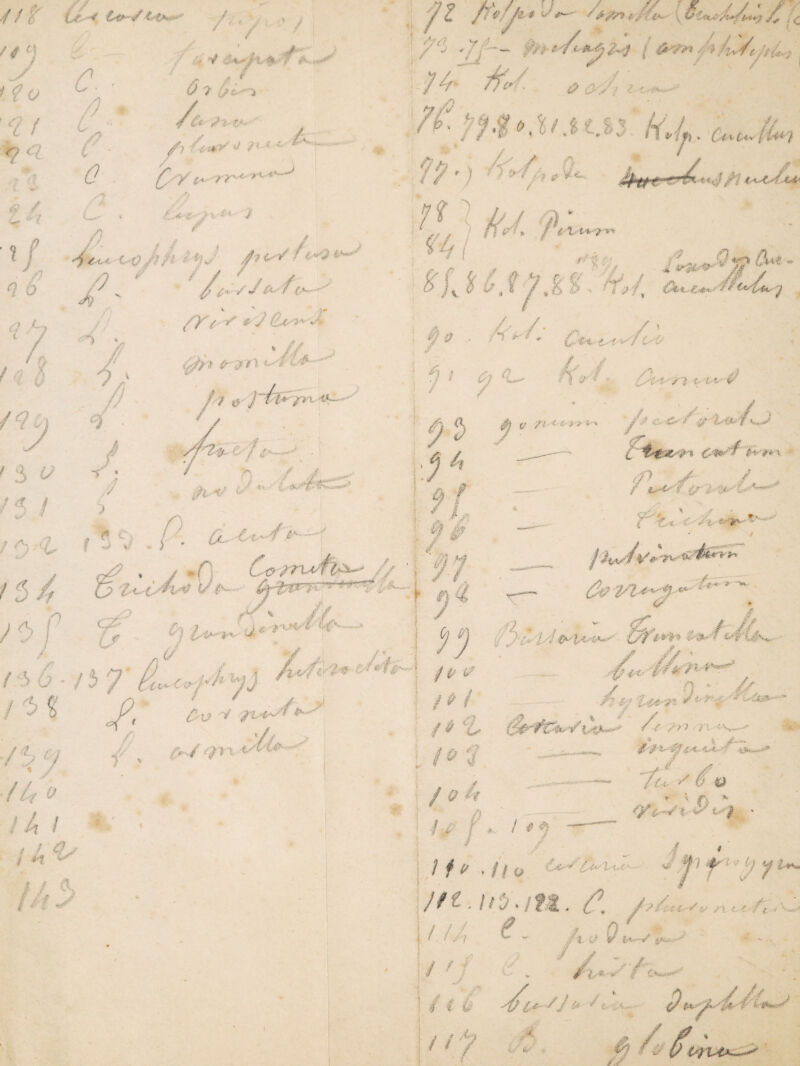 118 Cercaria
109 C —
120 C. orbis
121 C. luna
122 C. pleuronect
23 C. crumena
24 C. lupus
125 Leucophrys pertusa
26 L. bursata
27 L. viriscens
128 L. mamilla
129 L. postuma
130 L. fracta
131 L nodulata
132 133. L. acuta
134 Trichoda Cometa grandinella
135 T grandinella
136 - 137 Leucophrys heteroclita
138 L. cornuta
139 L. armilla
140
141
142
143
72 Kolpoda lamella
73. 75 — meleagris (amphileptus
74 Kol. ochrea
76. 79. 80. 81. 82. 83. Kolp. cucullus
77.) Kolpoda nucleus
78
84 } Kol. Pirum
85. 86. 87. 88. 89 Kol. cucullulus
90. Kol. cuculio
91 92 Kol. cuneus
93 gonium pectorale
94 — Truncatum
95 — Pectorale
96 — Trichina
97 — pulvinatum
98 — corrugatum
99 Bursaria Truncatella
100 — bullina
101 — hyrundinella
102 Cercaria lemna
103 — inquieta
104 — turbo
105. 109 — viridis.
110. 110 cercaria
112. 113. 122. C. pleuronectes
114 C - podura
115 C. hirta
116 bursaria duplella
117 B. globina